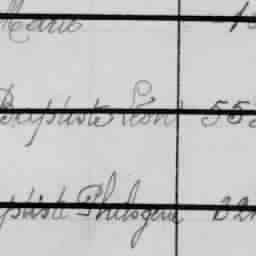 Marie
Baptiste Léon 55
ptiste Philogène 32